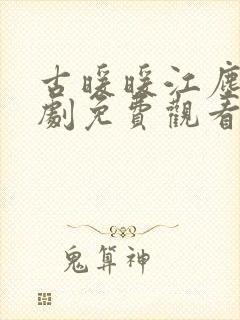 古暖暖江塵
劇免費觀看
鬼算神